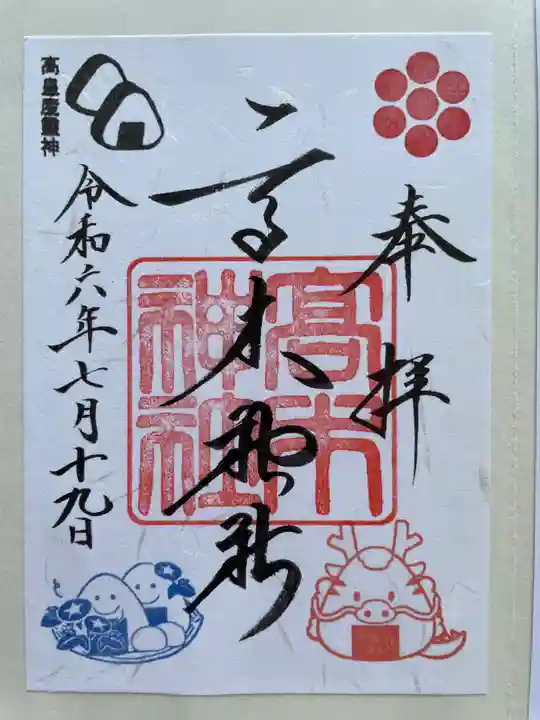 奉拝
高木神社
高木
神社
高皇産靈神
令和六年七月十九日